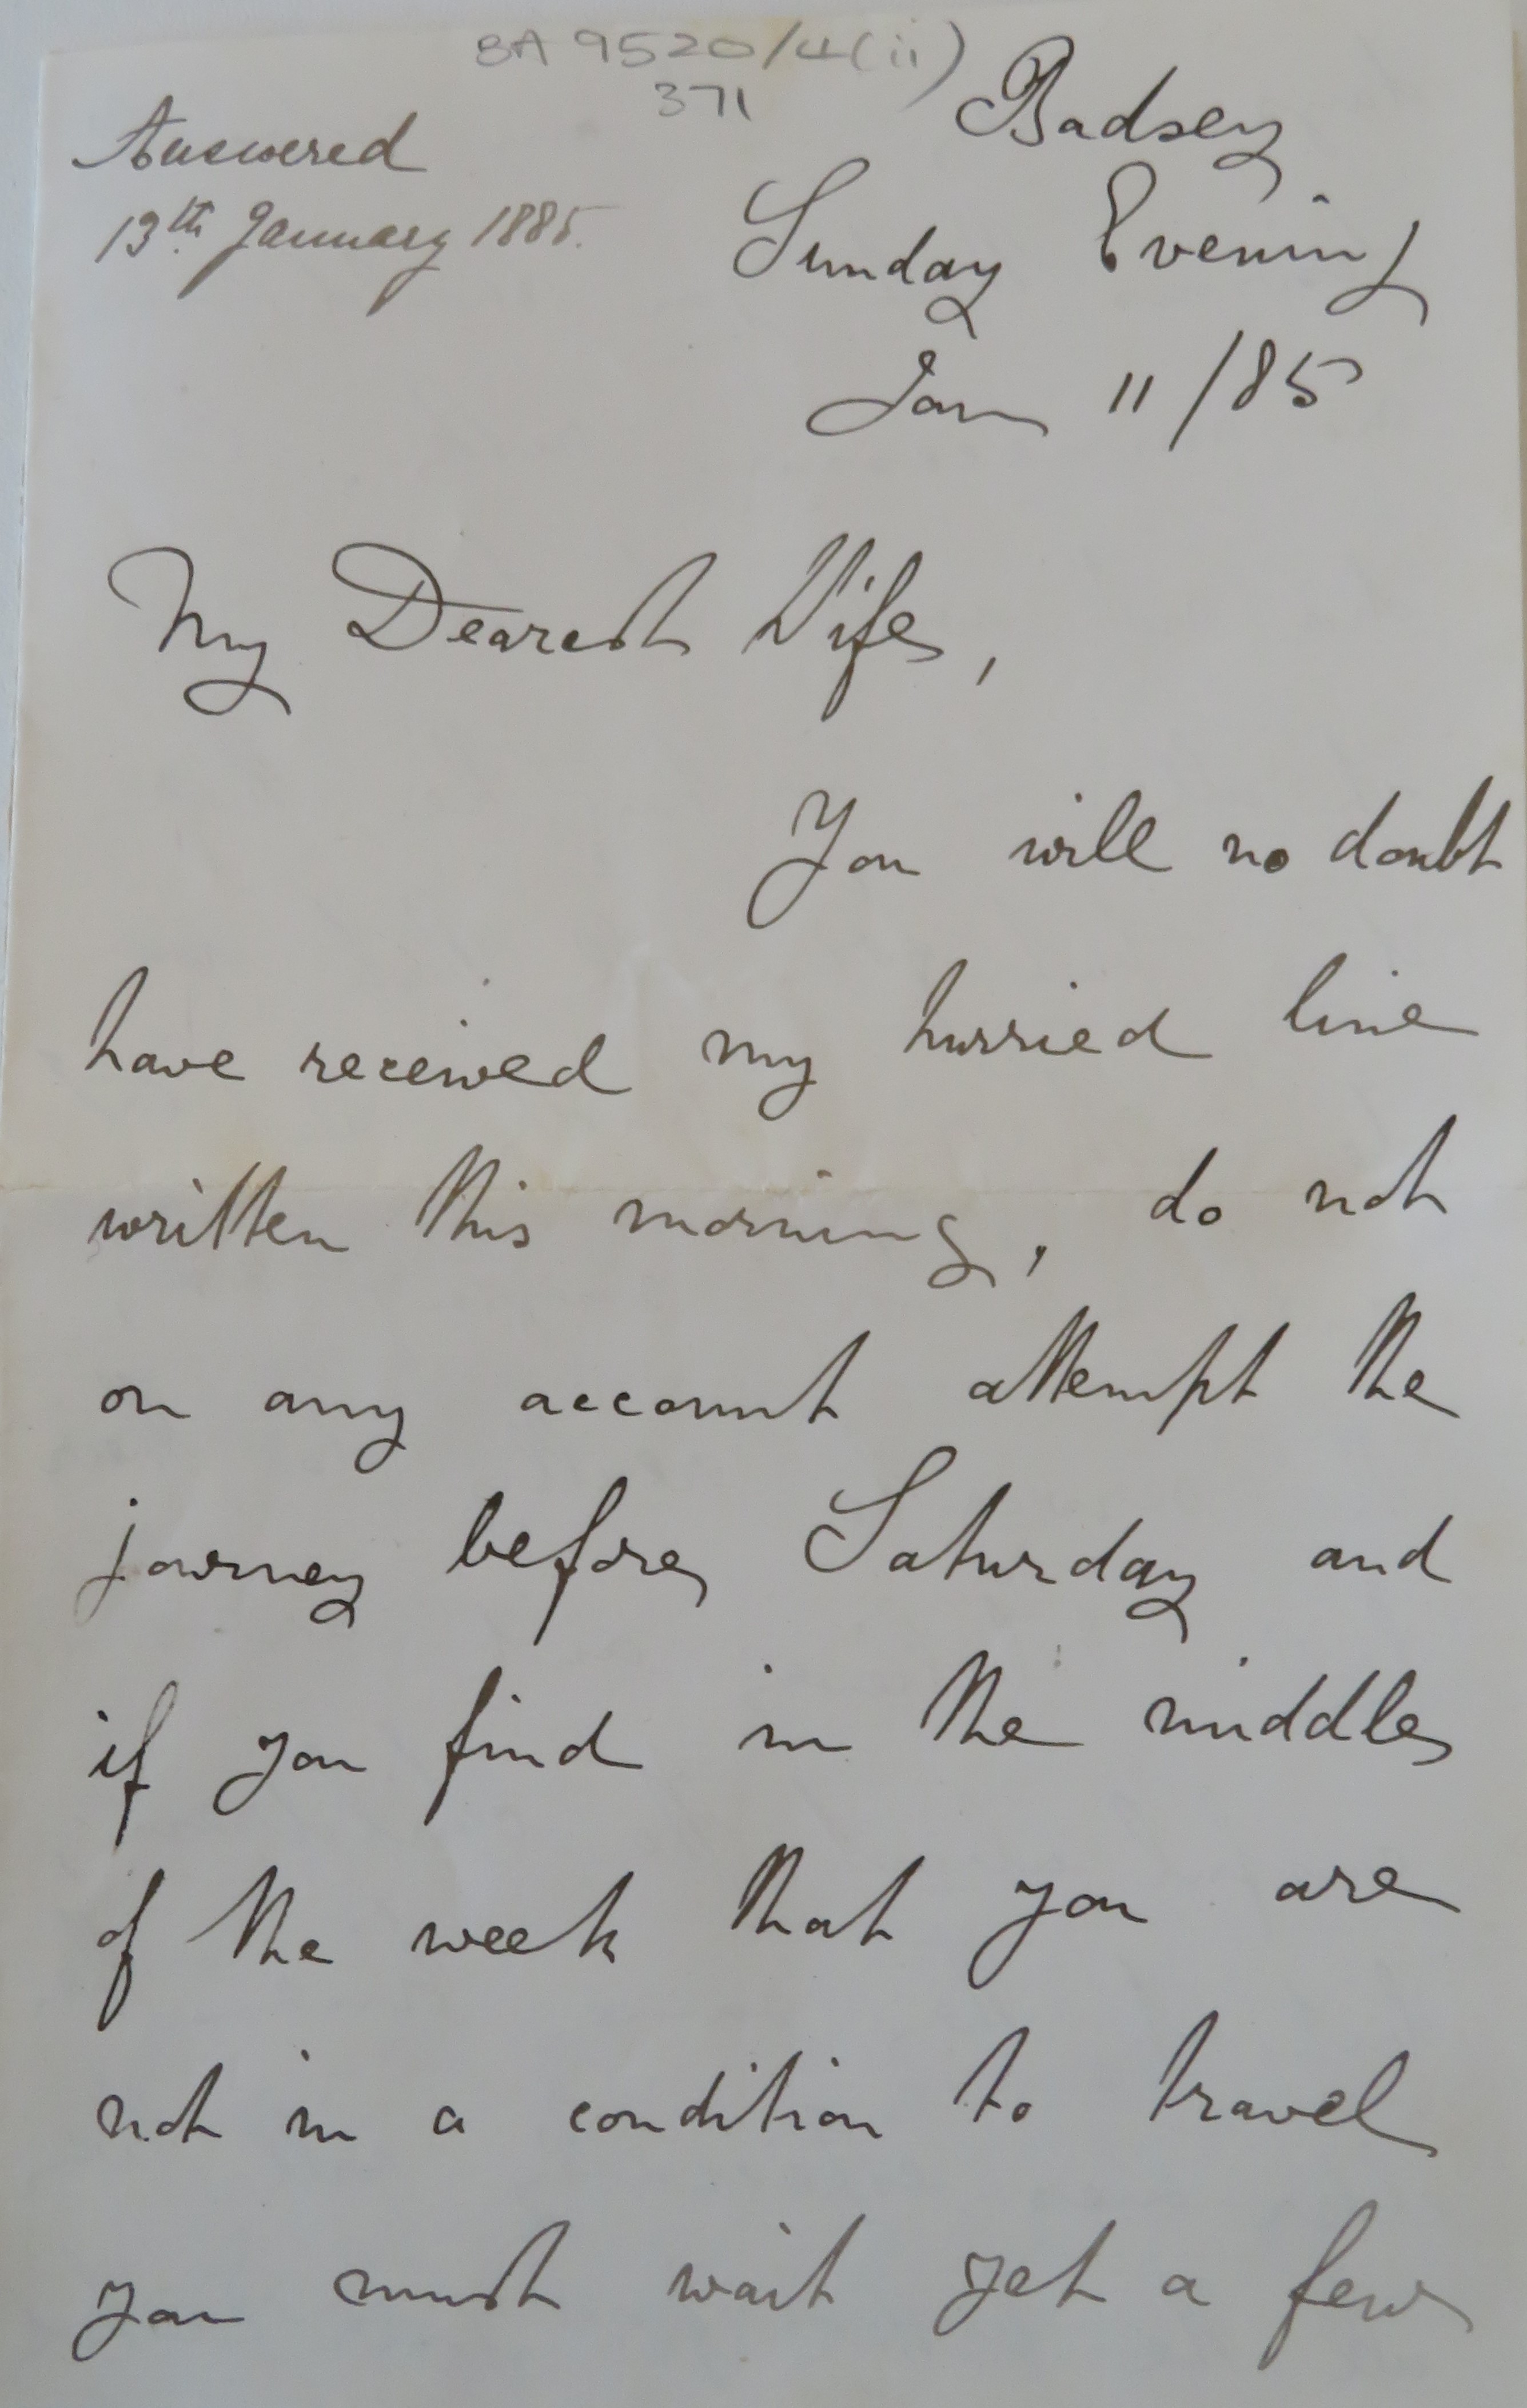 BA 9520/4(ii)
371
Badsey
Answered
13th January 1885.
Sunday Evening
Jan 11/85
My Dearest Wife,
You will no doubt
have received my hurried line
written this morning, do not
on any account attempt the
journey before Saturday and
if you find in the middle
of the week that you are
not in a condition to travel
you must wait yet a few